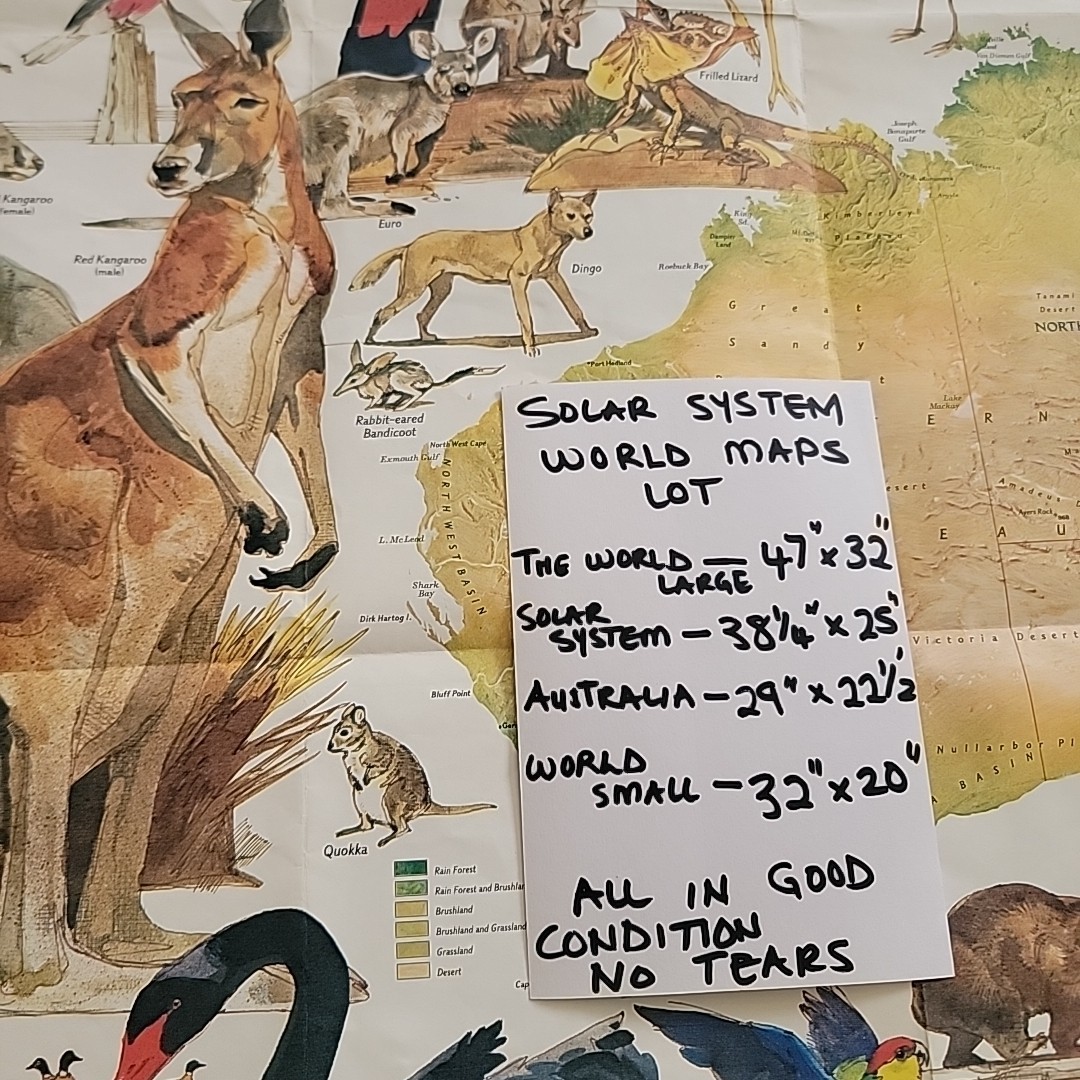 Frilled Lizard
Melville
Van Diemen Gulf
Joseph
Bonaparte
Gulf
Kangaroo
(female)
Euro
Red Kangaroo
(male)
Dingo
King
Sd.
Dampier
Land
Kimberley
Plateau
Roebuck Bay
Great
Sandy
Tanami
Desert
NORTH
Port Hedland
Lake
Mackay
ERN
Rabbit-eared
Bandicoot
North West Cape
Exmouth Gulf
NORTH WEST BASIN
esert
Amadeus
Ayers Rock
EAU
L. McLeod
Shark
Bay
Dirk Hartog I.
Victoria Desert
Bluff Point
Nullarbor Pl
BASIN
Quokka
Rain Forest
Rain Forest and Brushlan
Brushland
Brushland and Grassland
Grassland
Desert
Cap
SOLAR SYSTEM
WORLD MAPS
LOT
THE WORLD — 47" x 32"
LARGE
SOLAR
SYSTEM — 38 1/4" x 25"
AUSTRALIA — 29" x 22 1/2
WORLD
SMALL — 32" x 20"
ALL IN GOOD
CONDITION
NO TEARS